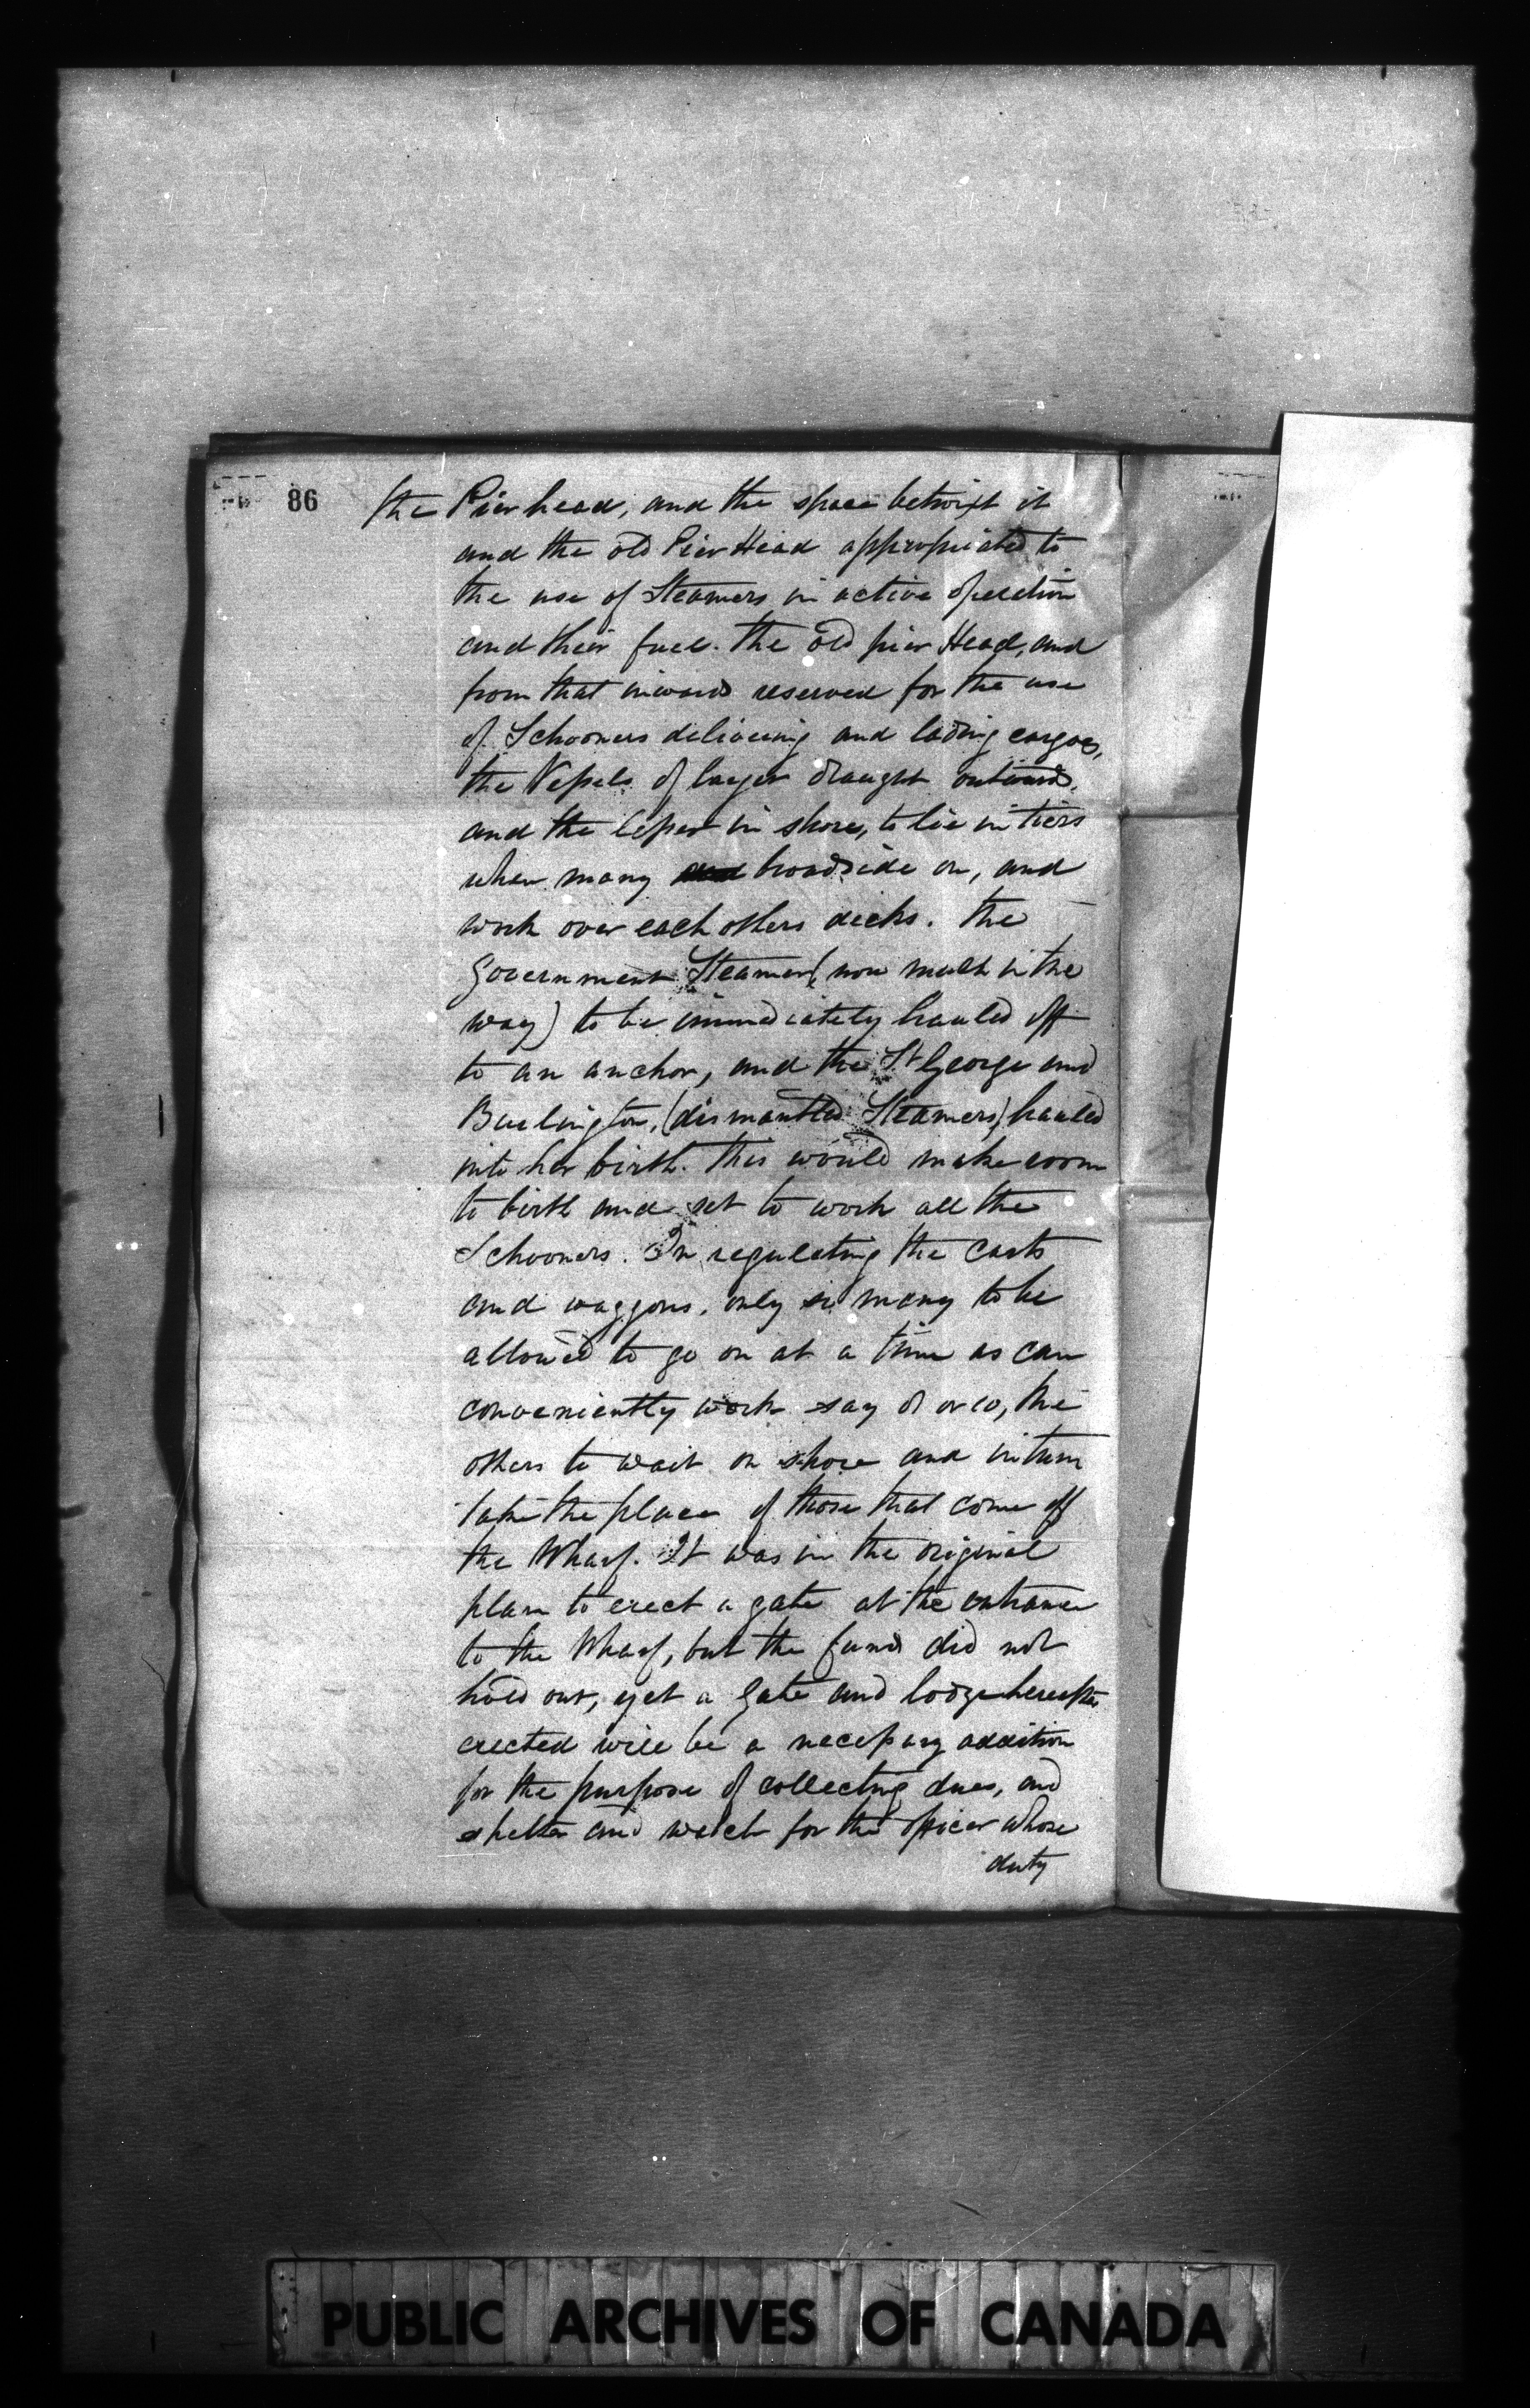 86
the Pier head, and the space betwixt it
and the old Pier Head appropriated to
the use of Steamers in active operation
and their fuel. The old pier Head, and
from that inward reserved for the use
of Schooners delivering and lading cargoes,
the Vessels of larger draught outward,
and the lesser in shore, to lie in tiers
when many broadside on, and
work over each others decks. The
Government Steamer (now much in the
way) to be immediately hauled off
to an anchor, and the St George and
Burlington, (dismantled Steamers) hauled
into her birth. This would make room
to birth and set to work all the
Schooners. In regulating the carts
and waggons, only so many to be
allowed to go on at a time as can
conveniently work say 8 or 10, the
others to wait on shore and in turn
take the place of those that come off
the Wharf. It was in the original
plan to erect a gate at the entrance
to the Wharf, but the funds did not
hold out, yet a Gate and lodge hereafter
erected will be a necessary addition
for the purpose of collecting dues, and
shelter and watch for the officer whose
duty
PUBLIC ARCHIVES OF CANADA